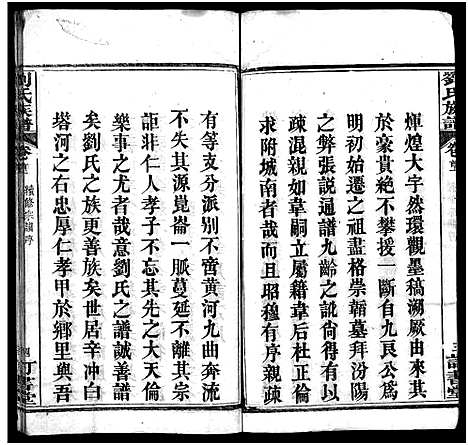 劉氏族譜
卷首
煇煌大字然環觀墨稿溯厥由來其
於豪貴絶不攀援一斷自九艮公爲
明初始遷之祖盡格崇韜墓拜汾陽
之弊張説通譜九齡之訛倘所謂親
疎混親者韋嗣立屬籍韋后杜正倫
求附城南者哉而且昭穆有序親疎
有等支分派别不啻黃河九曲奔流
不失其源崑崙一脈蔓延不離其宗
詎非仁人孝子不忘其先之大天倫
樂事之尤者哉意劉氏之譜誠善譜
矣劉氏之族更善族矣世居寧邑白
塔河之右忠厚仁孝甲於鄉里與吾
劉氏族譜
卷首
續修宗譜序